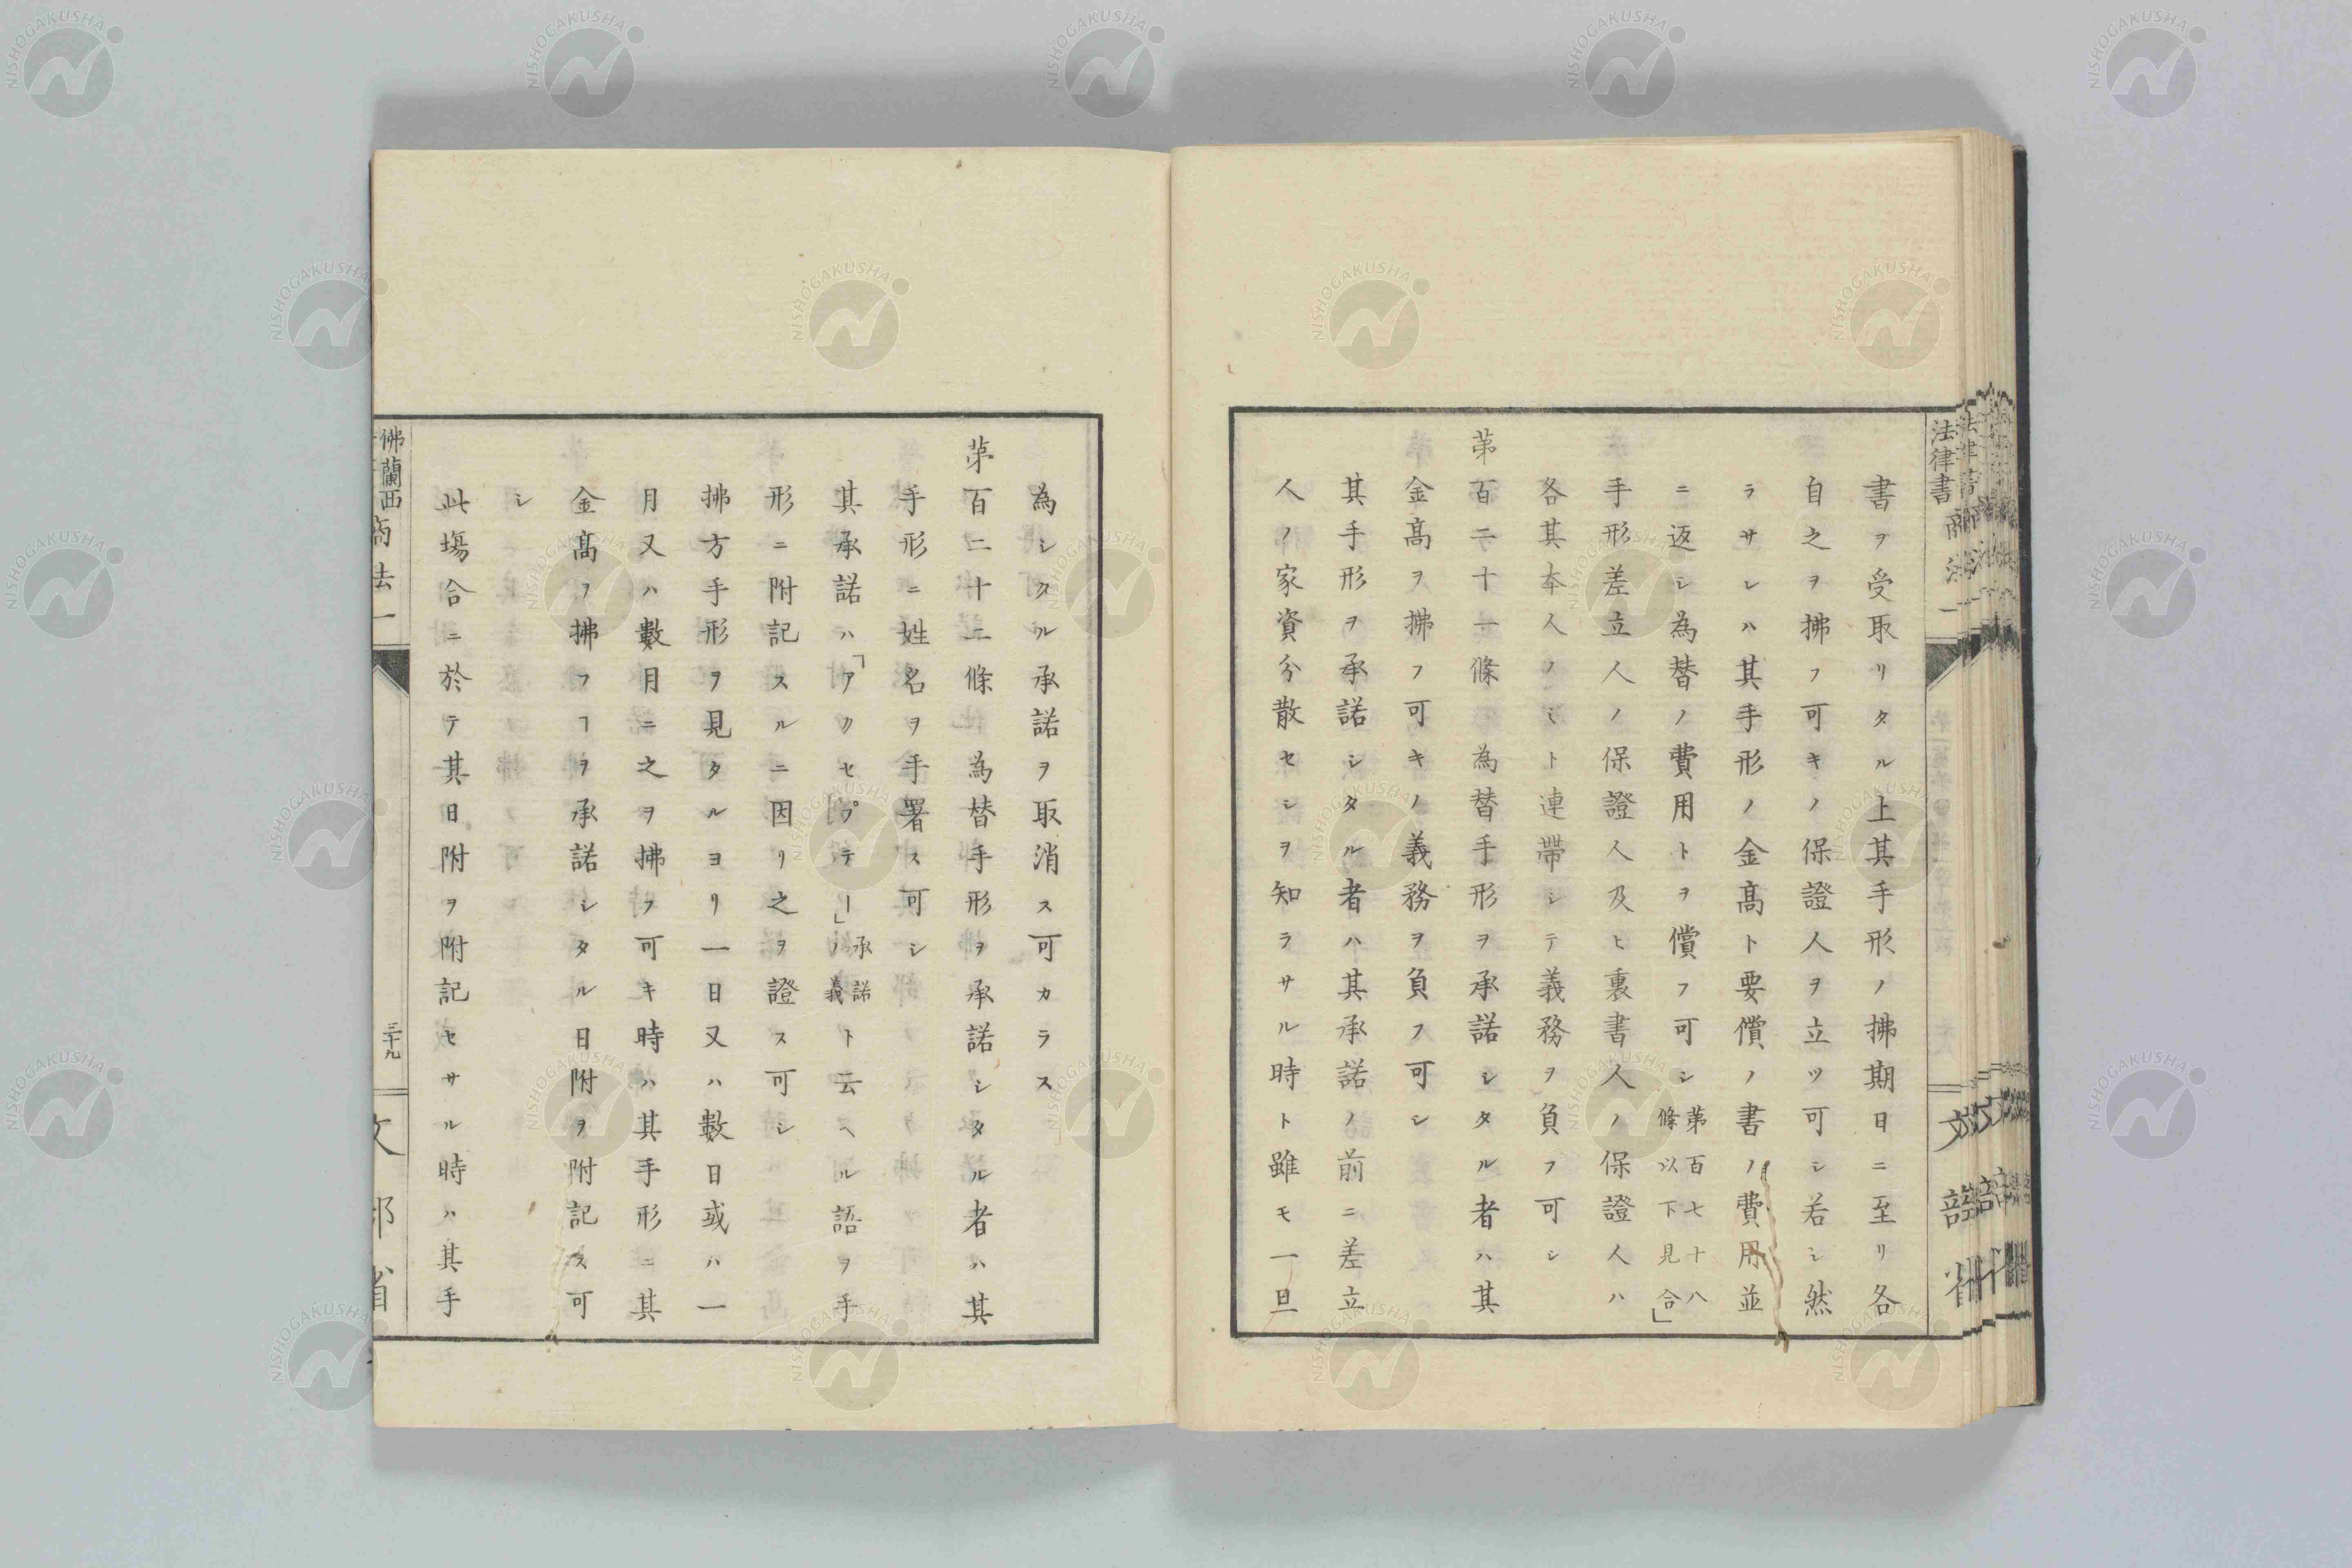 法律書 商法 一
書ヲ受取リタル上其手形ノ拂期日ニ至リ各
自之ヲ拂フ可キノ保證人ヲ立ツ可シ若シ然
ラサレハ其手形ノ金髙ト要償ノ書ノ費用並
ニ返シ為替ノ費用トヲ償フ可シ第百七十八條以下見合」
手形差立人ノ保證人及ヒ裏書人ノ保證人ハ
各其本人ノミト連帶シテ義務ヲ負フ可シ
第百二十一條 為替手形ヲ承諾シタル者ハ其
金髙ヲ拂フ可キノ義務ヲ負フ可シ
其手形ヲ承諾シタル者ハ其承諾ノ前ニ差立
人ノ家資分散セシヲ知ラサル時ト雖モ一旦
為シタル承諾ヲ取消ス可カラス
第百二十二條 為替手形ヲ承諾シタル者ハ其
手形ニ姓名ヲ手署ス可シ
其承諾ハ「アクセプテー」承諾ノ義ト云ヘル語ヲ手
形ニ附記スルニ因リ之ヲ證ス可シ
拂方手形ヲ見タルヨリ一日又ハ數日或ハ一
月又ハ數月ニ之ヲ拂フ可キ時ハ其手形ニ其
金髙ヲ拂フヿヲ承諾シタル日附ヲ附記ス可
シ
此塲合ニ於テ其日附ヲ附記セサル時ハ其手
佛蘭西 商法 一
三十九
文部省
NISHOGAKUSHA